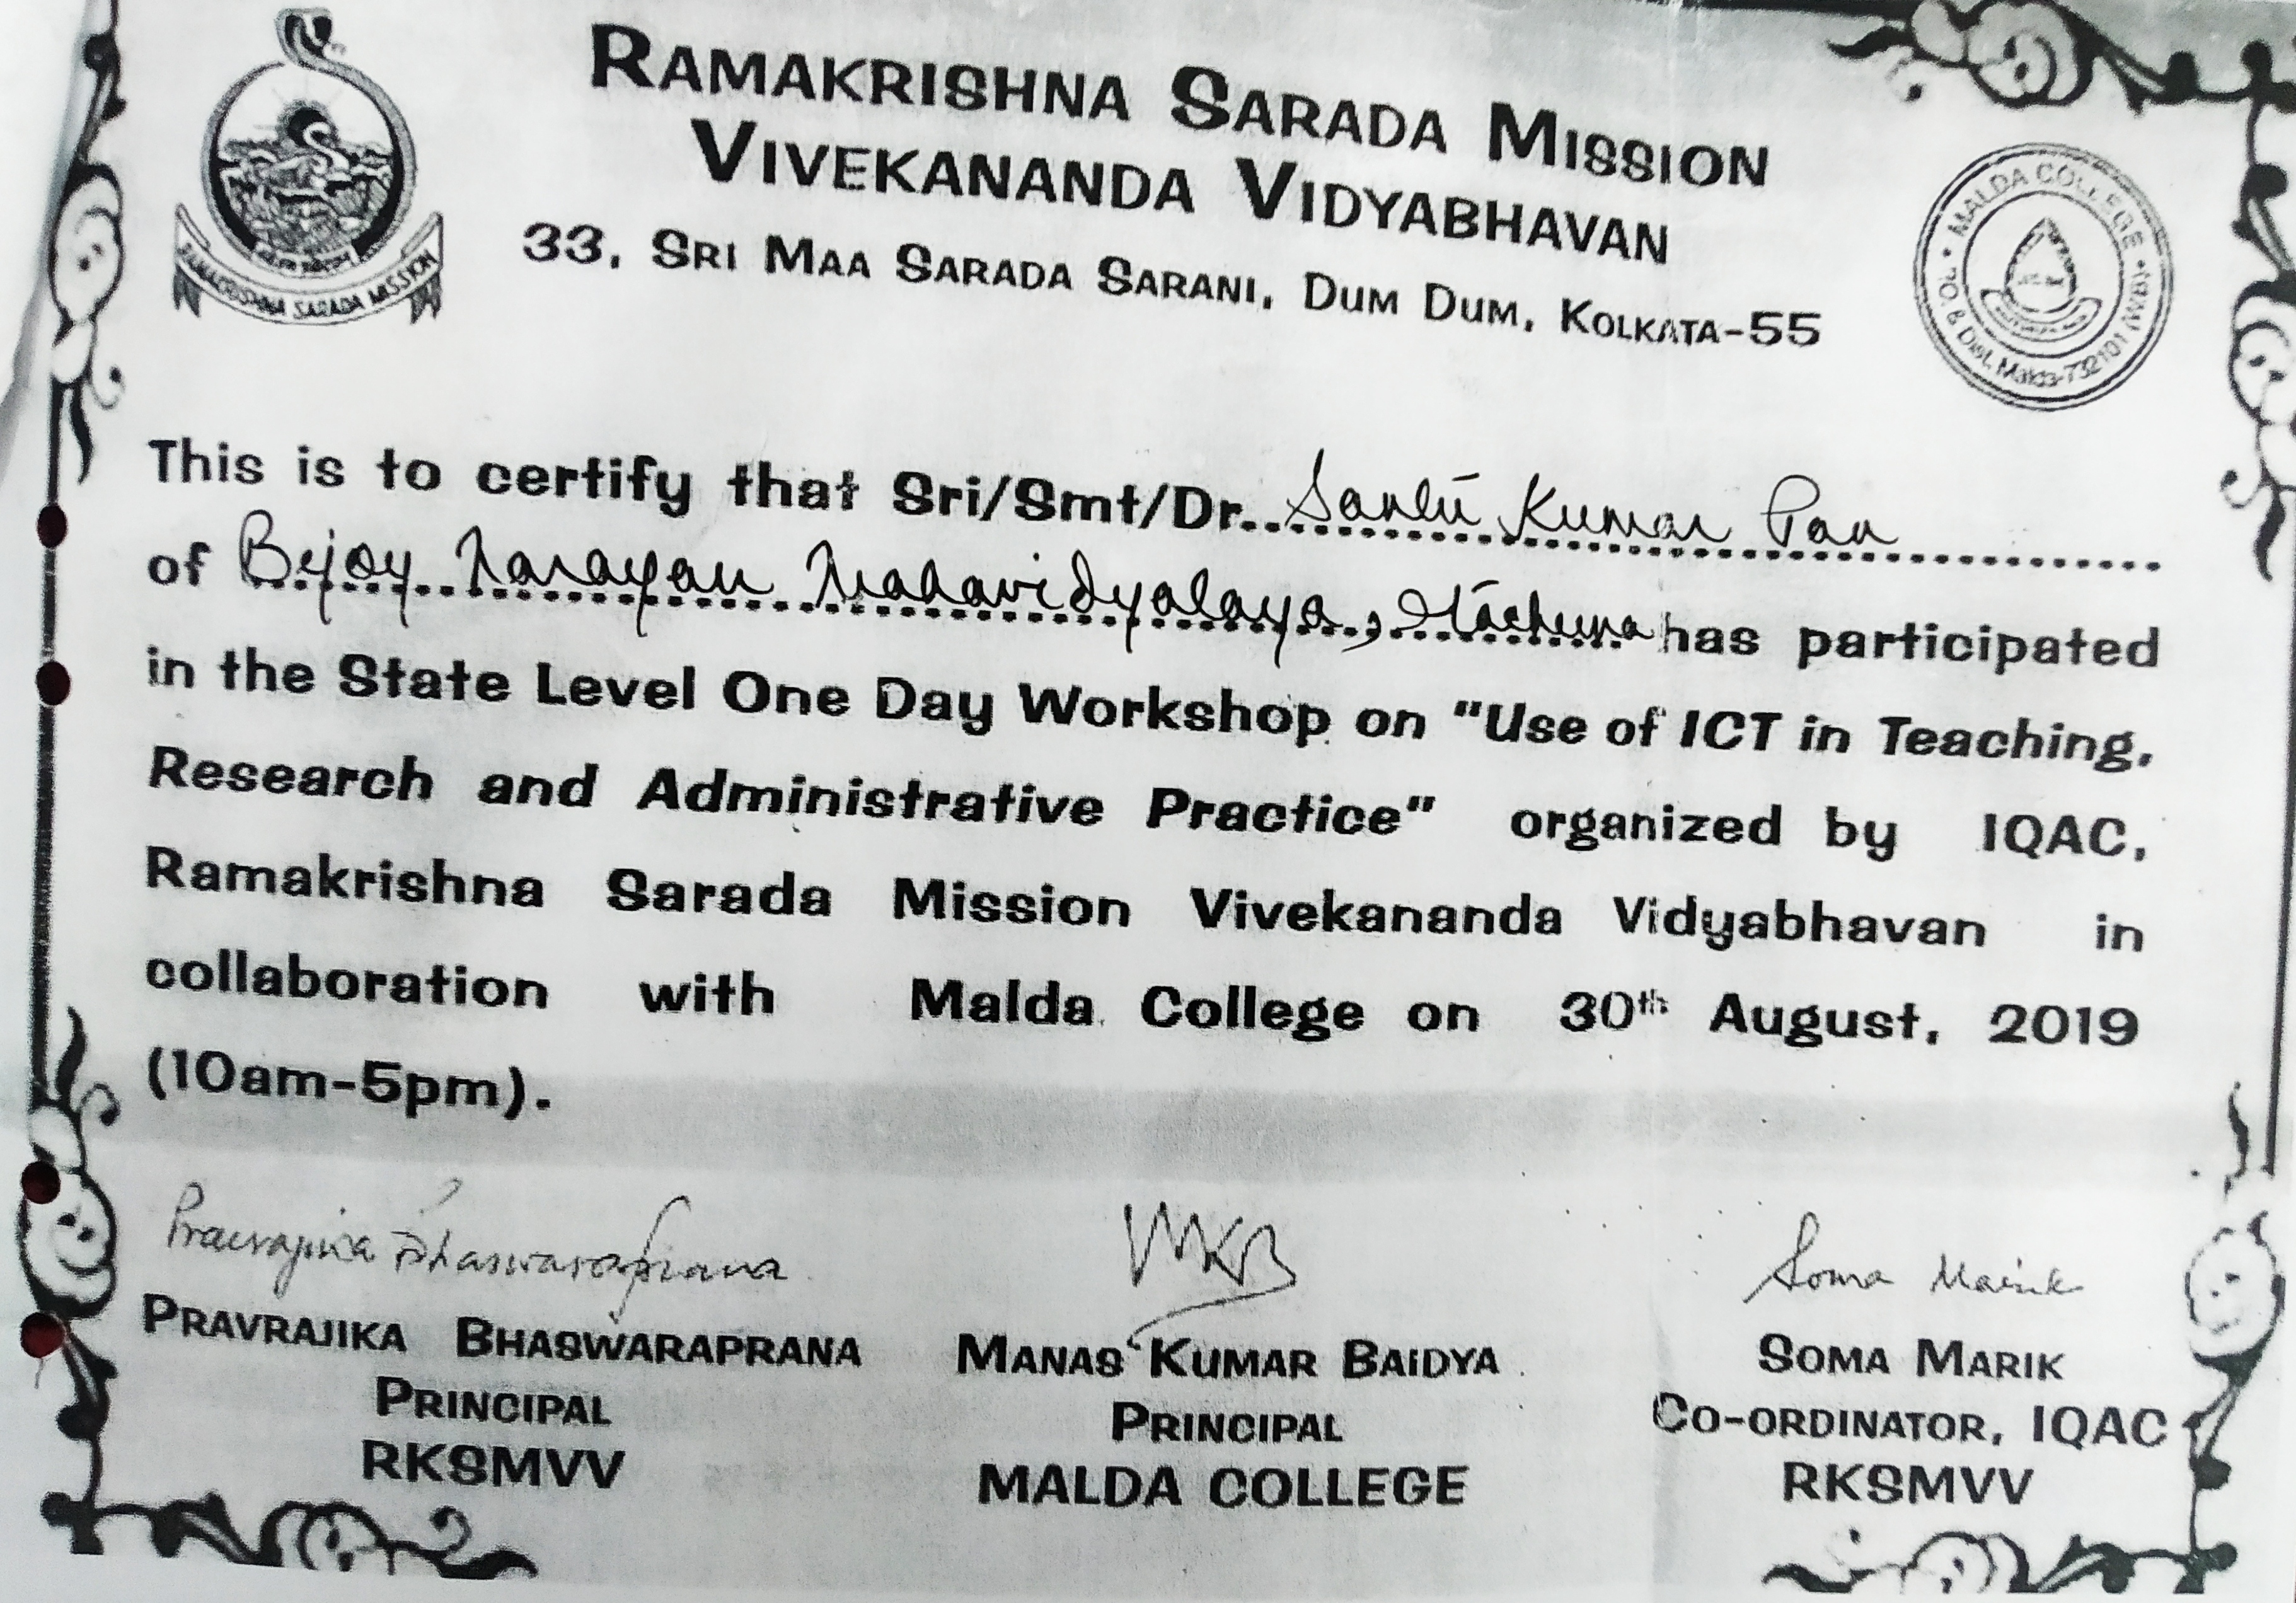 RAMAKRISHNA SARADA MISSION
VIVEKANANDA VIDYABHAVAN
33, SRI MAA SARADA SARANI, DUM DUM, KOLKATA-55
RAMAKRISHNA SARADA MISSION
MALDA COLLEGE
P.O. & Dist. Malda-732101 (W.B.)
This is to certify that Sri/Smt/Dr. Santu Kumar Pan
of Bejoy Narayan Mahavidyalaya, Itachuna has participated
in the State Level One Day Workshop on "Use of ICT in Teaching,
Research and Administrative Practice" organized by IQAC,
Ramakrishna Sarada Mission Vivekananda Vidyabhavan in
collaboration with Malda College on 30th August, 2019
(10am-5pm).
Pravrajika Bhaswaraprana MKB Soma Marik
PRAVRAJIKA BHASWARAPRANA MANAS KUMAR BAIDYA SOMA MARIK
PRINCIPAL PRINCIPAL CO-ORDINATOR, IQAC
RKSMVV MALDA COLLEGE RKSMVV